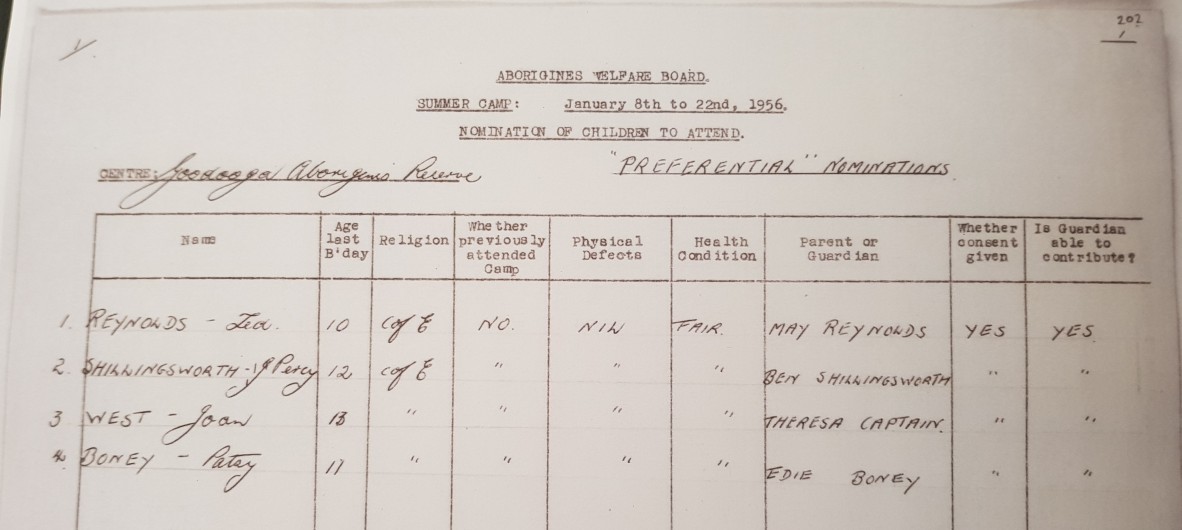 207
1
ABORIGINES WELFARE BOARD.
SUMMER CAMP: January 8th to 22nd, 1956.
NOMINATION OF CHILDREN TO ATTEND.
CENTRE: Goodooga Aborigines Reserve "PREFERENTIAL" NOMINATIONS.
Name Age last B'day Religion Whether previously attended Camp Physical Defects Health Condition Parent or Guardian Whether consent given Is Guardian able to contribute?
1. REYNOLDS - 10 C of E NO. NIL FAIR. MAY REYNOLDS YES YES.
2. SHILLINGSWORTH - Percy 12 C of E " " " BEN SHILLINGSWORTH " "
3 WEST - Joan 13 " " " " THERESA CAPTAIN. " "
4. BONEY - Patsy 11 " " " " EDIE BONEY " "